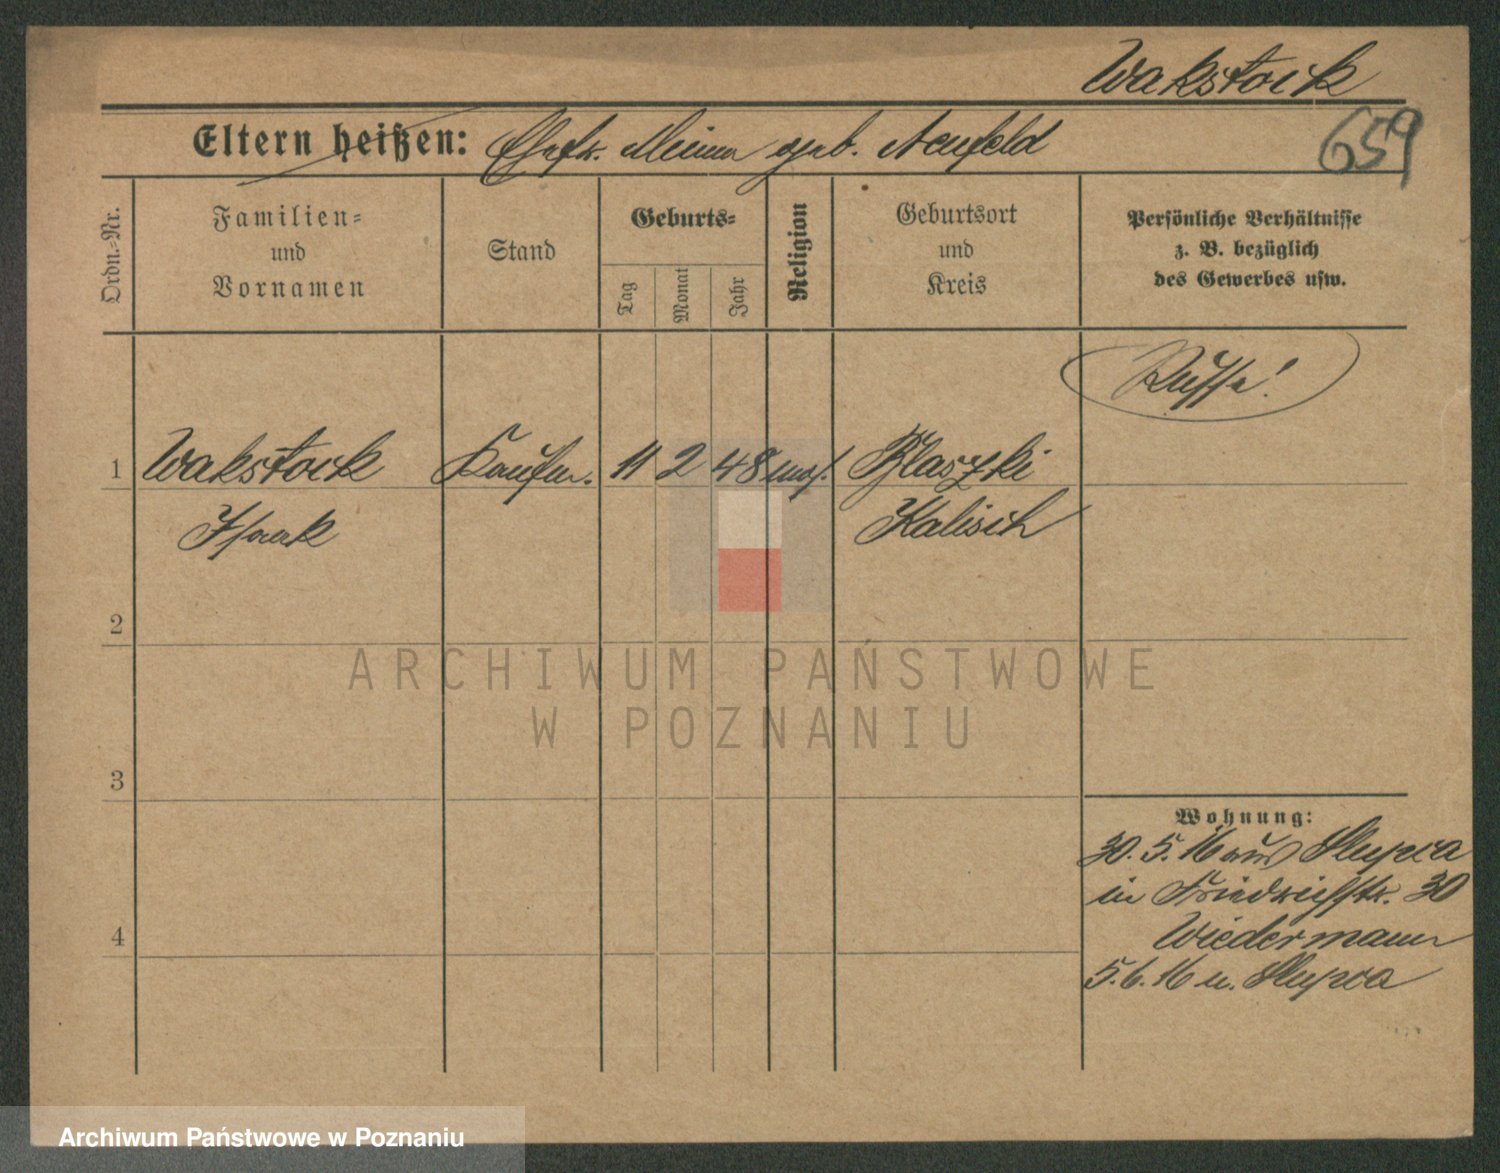 Wakstock
659
Eltern heißen: Ehefr. Minna geb. Neufeld
Ordn.=Nr.
Familien=
und
Vornamen
Stand
Geburts=
Tag
Monat
Jahr
Religion
Geburtsort
und
Kreis
Persönliche Verhältnisse
z. B. bezüglich
des Gewerbes usw.
Russe!
1 Wakstock Kaufm. 11 2 48 mos. Blaszki
Isaak Kalisch
2
ARCHIWUM PAŃSTWOWE
W POZNANIU
3
Wohnung:
30. 5. 16 aus Slupca
in Friedrichstr. 30
4
Wiedermann
5. 6. 16 n. Slupca
Archiwum Państwowe w Poznaniu